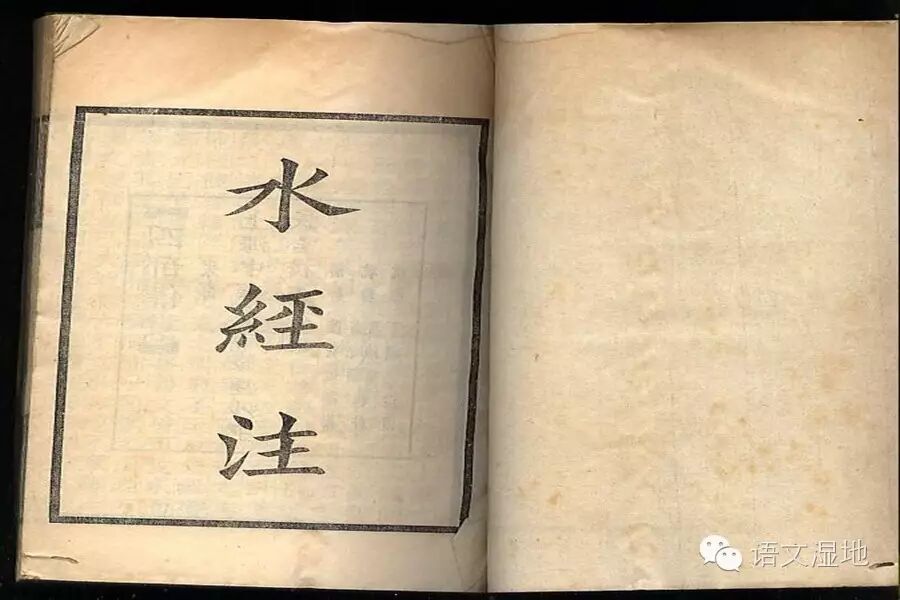 水經注
语文湿地